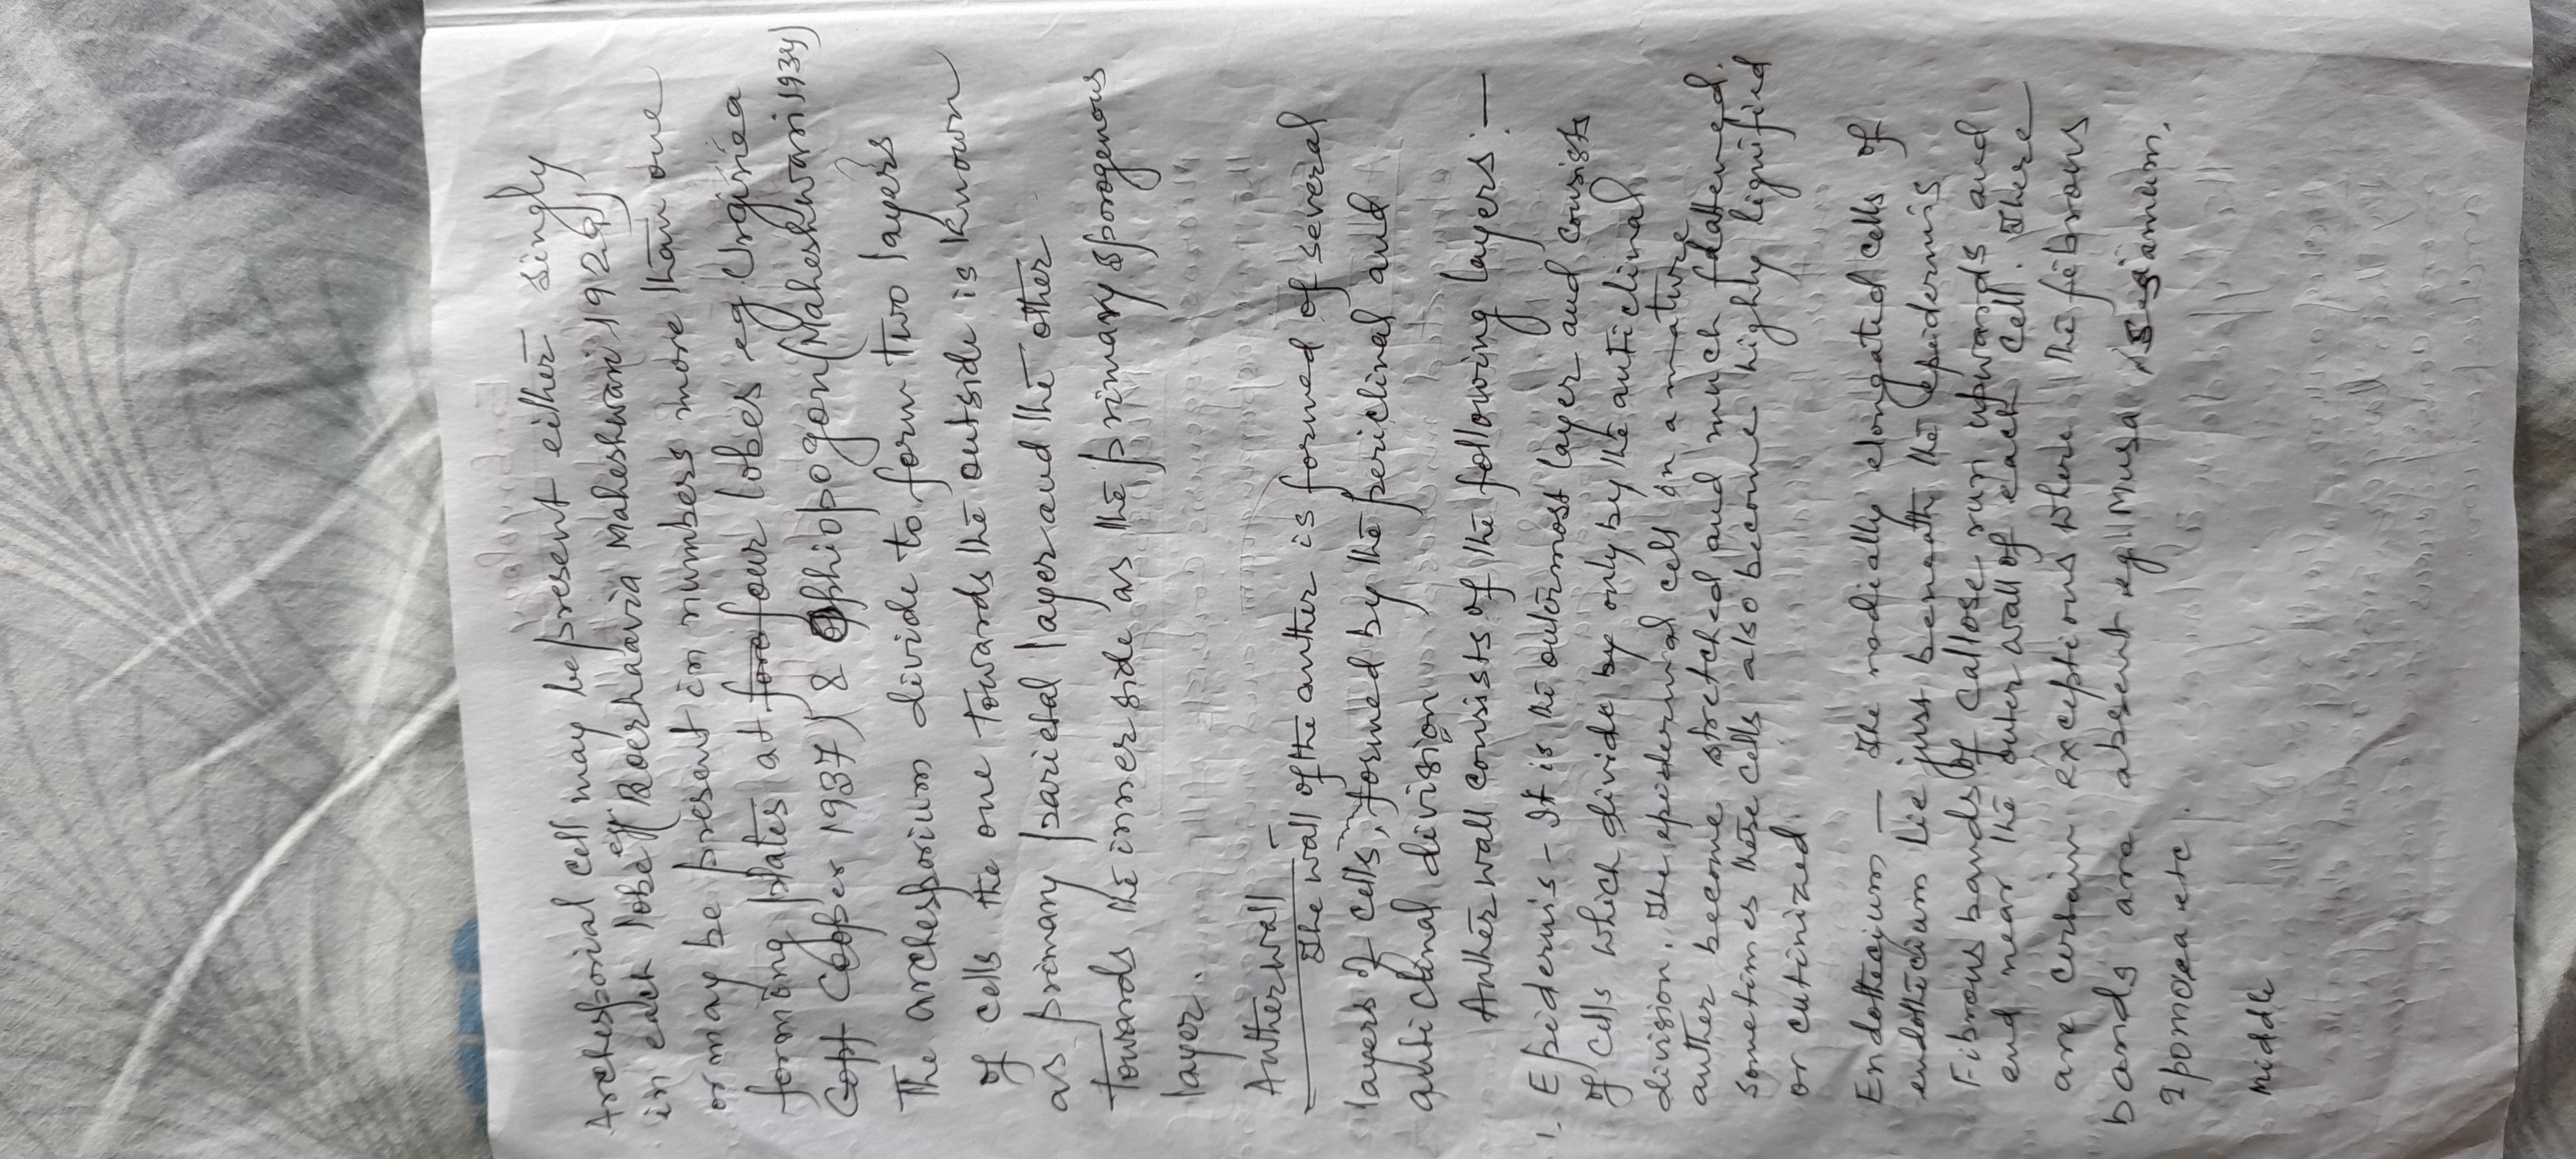 Archesporial cell may be present either singly
in each lobe eg (Boerhaavia Maheshwari, 1929)
or may be present in numbers more than one
forming plates at four lobes eg Urginea
Cooper 1937) & Ophiopogon (Maheshwari 1934)
The archesporium divide to form two layers
of cells the one towards the outside is known
as primary parietal layer and the other
towards the inner side as the primary sporogenous
layer.
Antherwall
The wall of the anther is formed of several
layers of cells, formed by the periclinal and
anticlinal division
Antherwall consists of the following layers :—
1. Epidermis - It is the outermost layer and consists
of cells which divide by only by the anticlinal
division. The epidermal cell in a mature
anther become stretched and much flattened.
sometimes these cells also become highly lignified
or cutinized.
Endothecium — The radially elongated cells of
endothecium lie just beneath the epidermis
Fibrous bands of callose run upwards and
end near the outer wall of each cell. There
are certain exceptions where the fibrous
bands are absent eg Musa
Ipomoea etc.
Middle